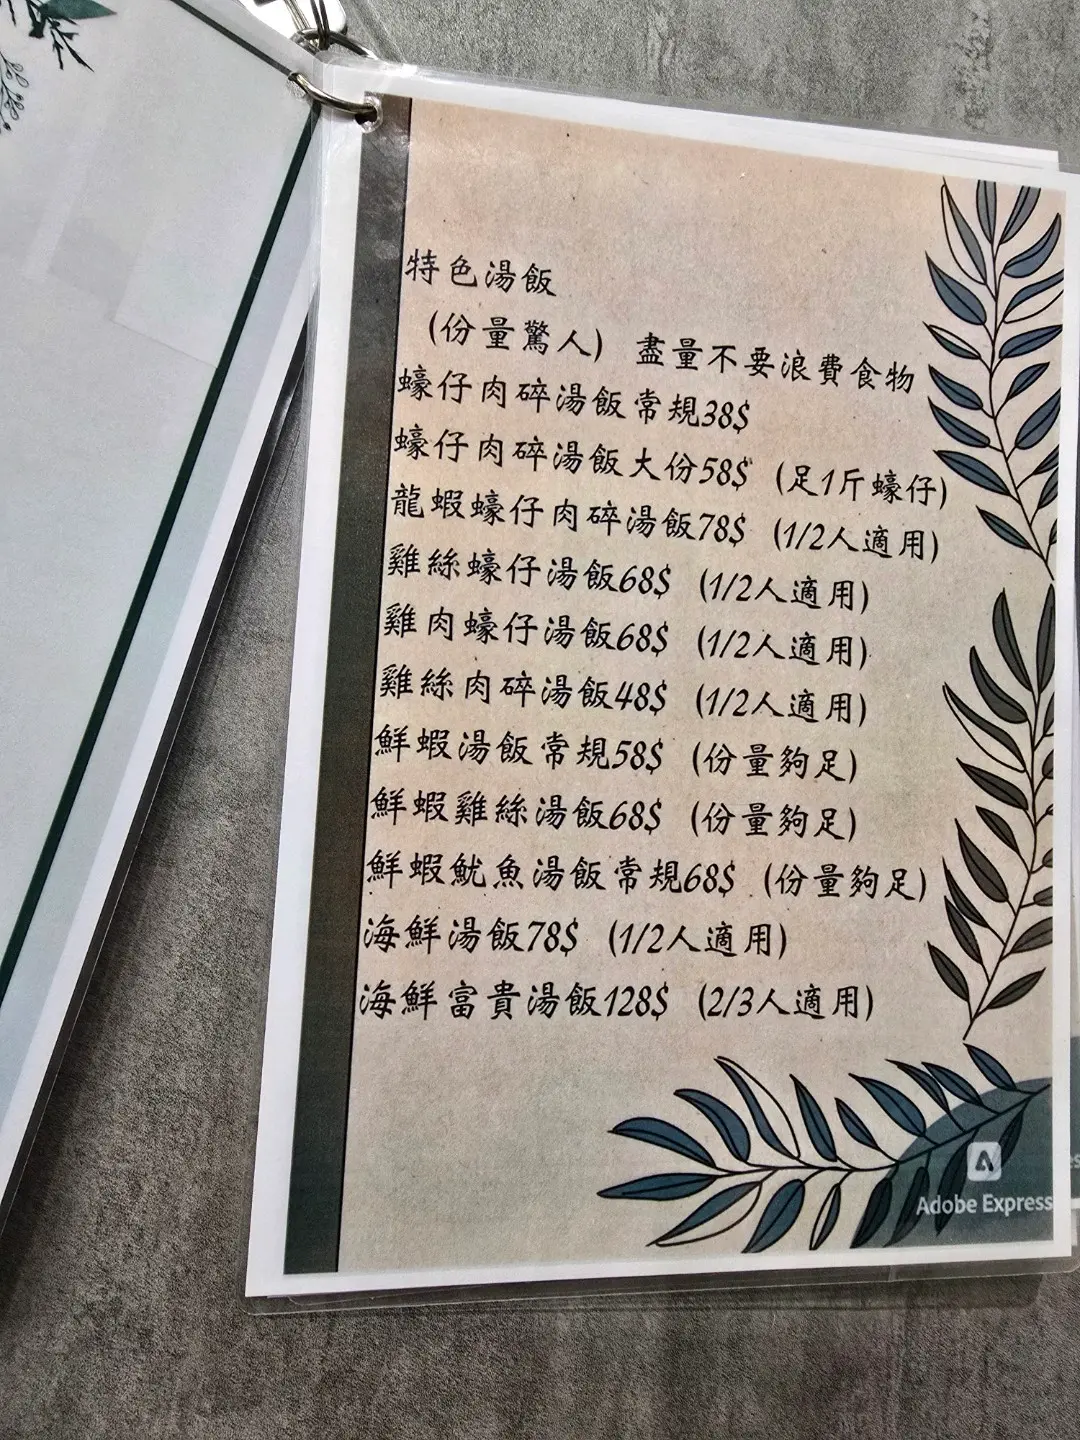 特色湯飯
(份量驚人) 盡量不要浪費食物
蠔仔肉碎湯飯常規38$
蠔仔肉碎湯飯大份58$ (足1斤蠔仔)
龍蝦蠔仔肉碎湯飯78$ (1/2人適用)
雞絲蠔仔湯飯68$ (1/2人適用)
雞肉蠔仔湯飯68$ (1/2人適用)
雞絲肉碎湯飯48$ (1/2人適用)
鮮蝦湯飯常規58$ (份量夠足)
鮮蝦雞絲湯飯68$ (份量夠足)
鮮蝦魷魚湯飯常規68$ (份量夠足)
海鮮湯飯78$ (1/2人適用)
海鮮富貴湯飯128$ (2/3人適用)
Adobe Express